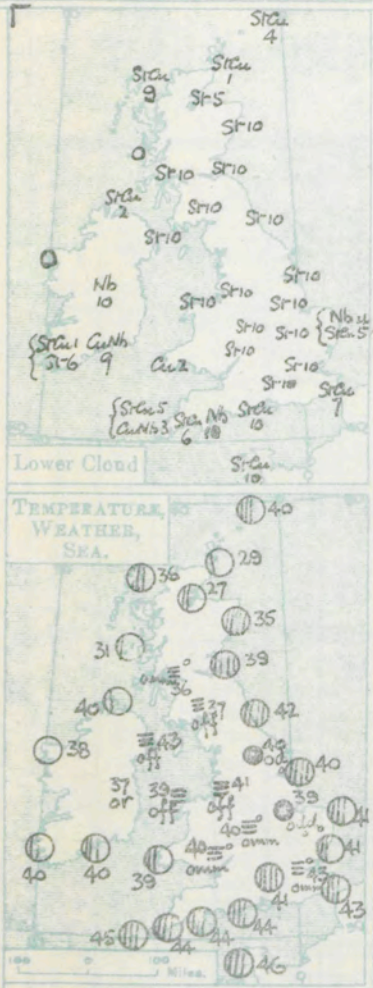 StCu
4
StCu
1
StCu
9
St-5
St-10
0
St-10 St-10
StCu
2
St-10
St-10
St-10
0
Nb
10
St-10
St-10
St-10
St-10
{StCu1
St-6
CuNb
9
St-10
St-10
{Nb
StCu5
Cu2
St-10
St-10
St-10
{StCu5
CuNb3
StCu
6
Nb
10
StCu
10
StCu
7
Lower Cloud
StCu
10
TEMPERATURE,
WEATHER,
SEA.
40
29
36
27
35
31
39
omm
36
40
37
off
42
38
43
off
40
37
or
39
off
41
off
39
41
40
omm
40
omm
41
40
40
39
41
43
43
45
44
44
44
46
100 0 100
Miles.